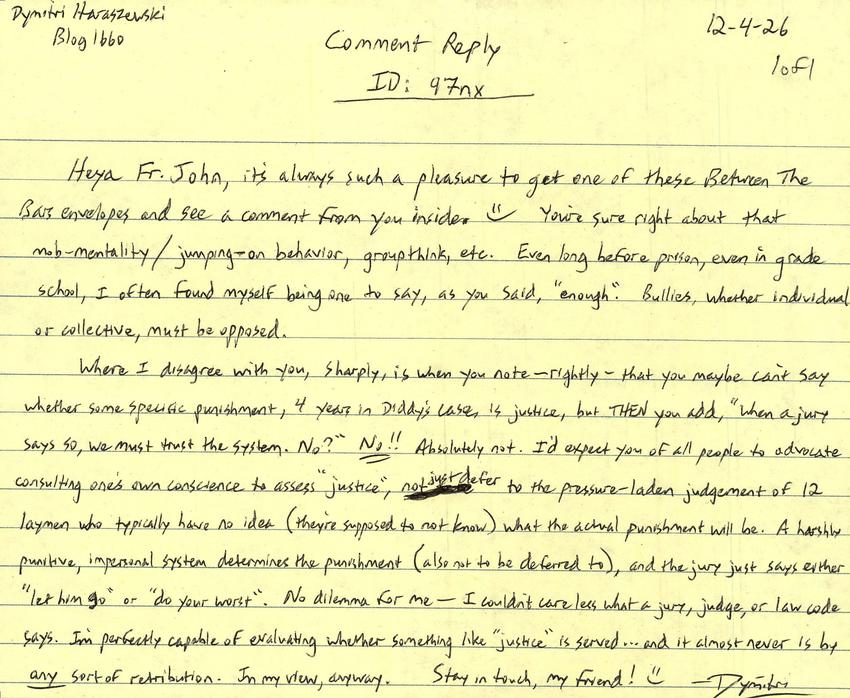 Dymitri Haraszewski
Blog 1660
12-4-26
1 of 1
Comment Reply
ID: 97nx
Heya Fr. John, it's always such a pleasure to get one of these Between The
Bars envelopes and see a comment from you inside. You're sure right about that
mob-mentality / jumping-on behavior, groupthink, etc. Even long before prison, even in grade
school, I often found myself being one to say, as you said, "enough". Bullies, whether individual
or collective, must be opposed.
Where I disagree with you, sharply, is when you note – rightly – that you maybe can't say
whether some specific punishment, 4 years in Diddy's case, is justice, but THEN you add, "When a jury
says so, we must trust the system. No?" No!! Absolutely not. I'd expect you of all people to advocate
consulting one's own conscience to assess "justice", not just defer to the pressure-laden judgement of 12
laymen who typically have no idea (they're supposed to not know) what the actual punishment will be. A harshly
punitive, impersonal system determines the punishment (also not to be deferred to), and the jury just says either
"let him go" or "do your worst". No dilemma for me — I couldn't care less what a jury, judge, or law code
says. I'm perfectly capable of evaluating whether something like "justice" is served... and it almost never is by
any sort of retribution. In my view, anyway. Stay in touch, my friend! —Dymitri